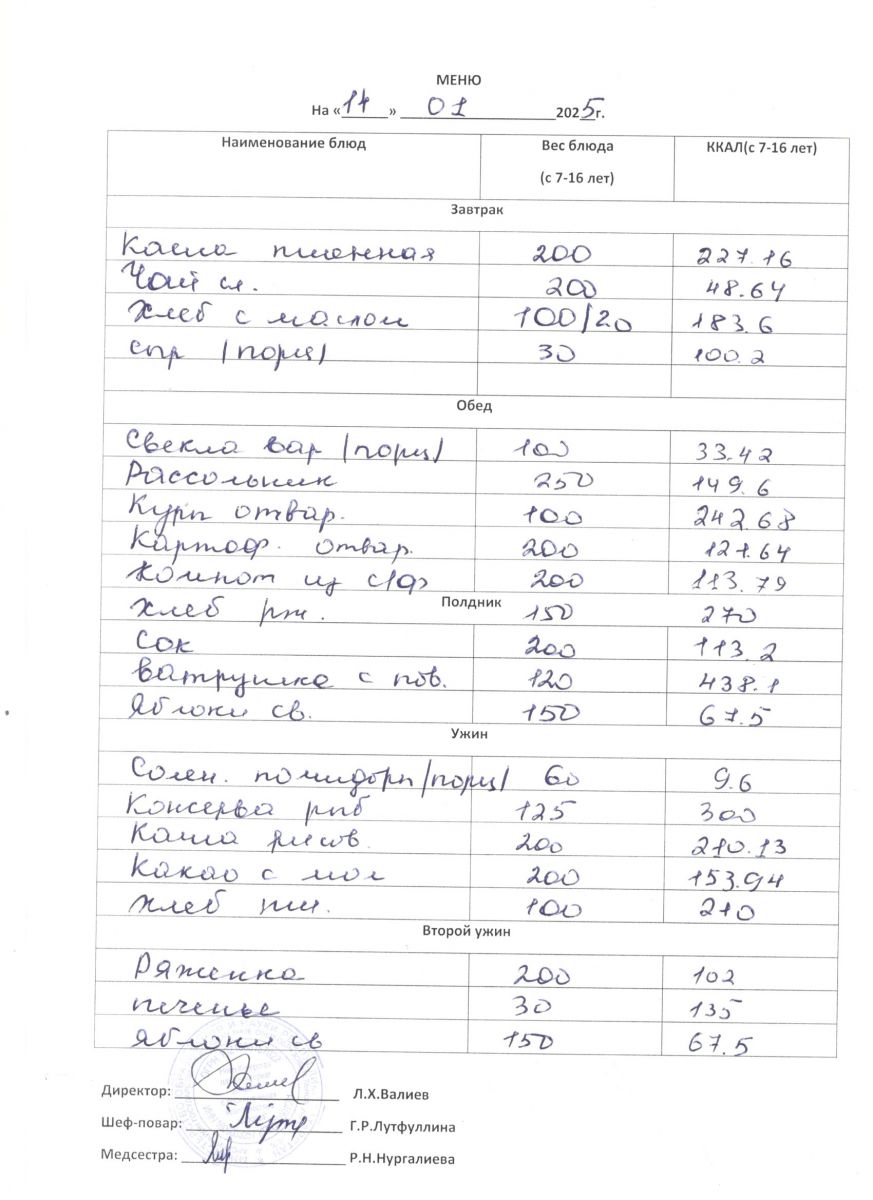 МЕНЮ
На «14» 01 2025г.
Наименование блюд Вес блюда (с 7-16 лет) ККАЛ(с 7-16 лет)
Завтрак
Каша пшенная 200 227.16
Чай сл. 200 48.64
Хлеб с маслом 100/20 183.6
сыр /порц/ 30 100.2
Обед
Свекла вар /порц/ 100 33.42
Рассольник 250 149.6
Куры отвар. 100 242.68
Картоф. отвар. 200 121.64
Компот из с/ф 200 113.79
Хлеб рж. 150 270
Полдник
Сок 200 113.2
Ватрушка с пов. 120 438.1
Яблоки св. 150 67.5
Ужин
Солен. помидоры /порц/ 60 9.6
Консерва рыб 125 300
Каша рисов. 200 210.13
Какао с мол 200 153.94
Хлеб пш. 100 210
Второй ужин
Ряженка 200 102
печенье 30 135
Яблоки св 150 67.5
Директор: Л.Х.Валиев
Шеф-повар: Г.Р.Лутфуллина
Медсестра: Р.Н.Нургалиева